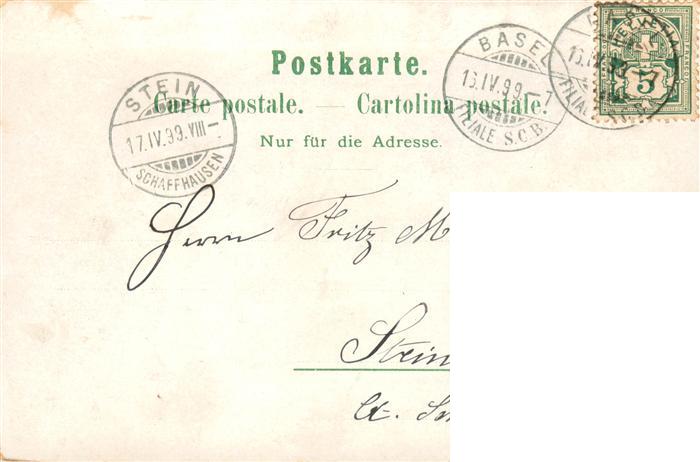 Postkarte.
Carte postale. — Cartolina postale.
Nur für die Adresse.
STEIN
17.IV.99.VIII–
SCHAFFHAUSEN
BASEL
16.IV.99.–7
FILIALE S.C.B.
HELVETIA
5
Herrn Fritz M
Stein